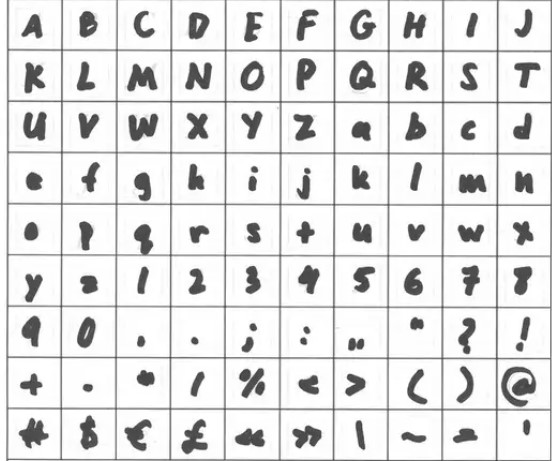 A B C D E F G H I J
K L M N O P Q R S T
U V W X Y Z a b c d
e f g h i j k l m n
o p q r s t u v w x
y z 1 2 3 4 5 6 7 8
9 0 , . ; : „ “ ? !
+ - * / % < > ( ) @
# $ € £ « » | ~ = '